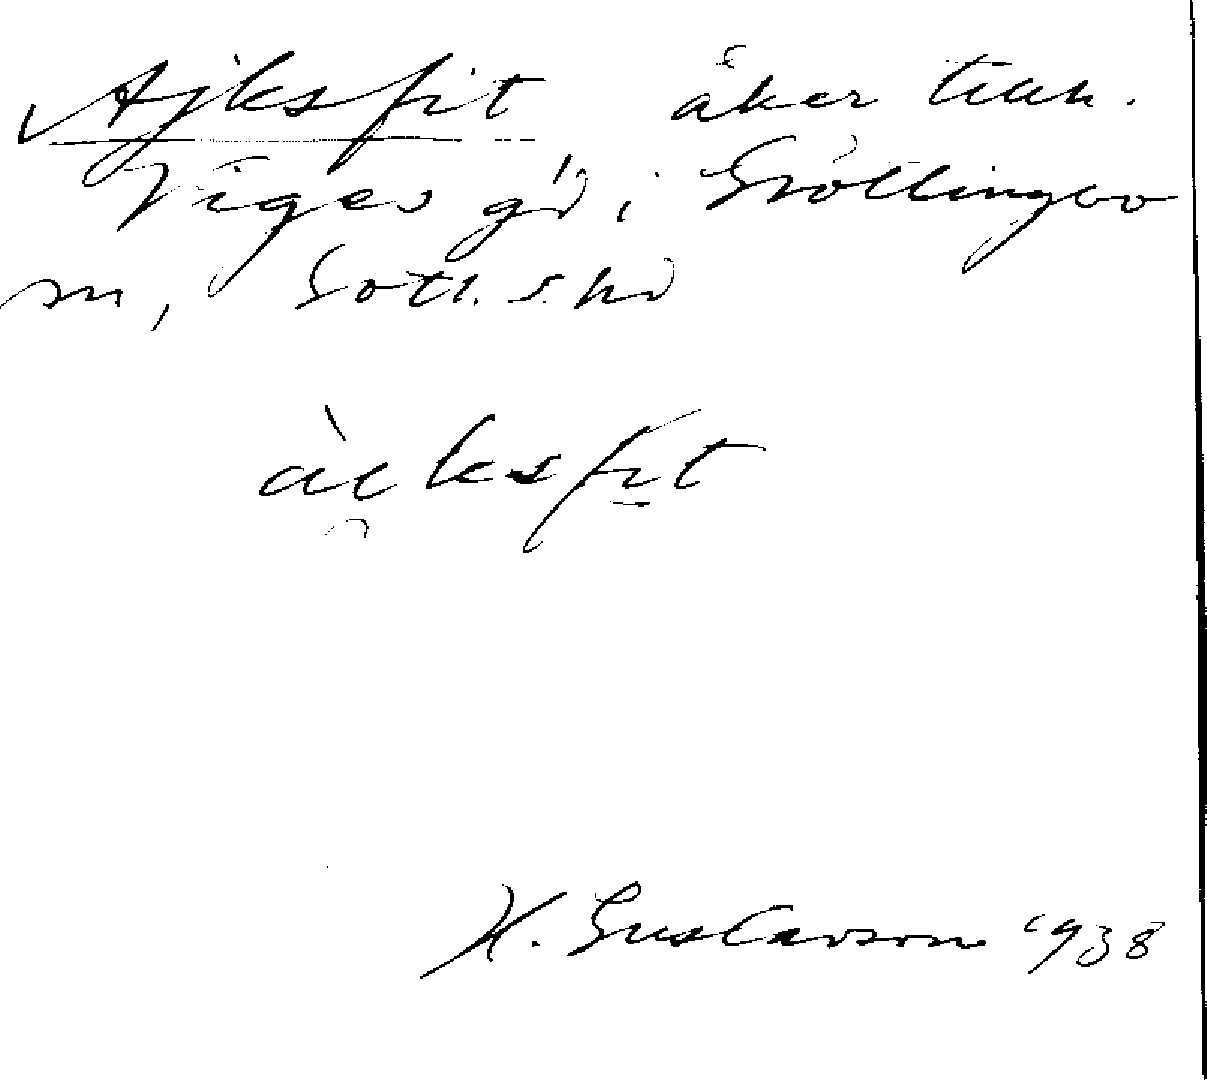 Ajksfit åker tillh.
Viges gd i Grötlingbo
sn, Gotl. s. hd
àiksfit
H. Gustavson 1938